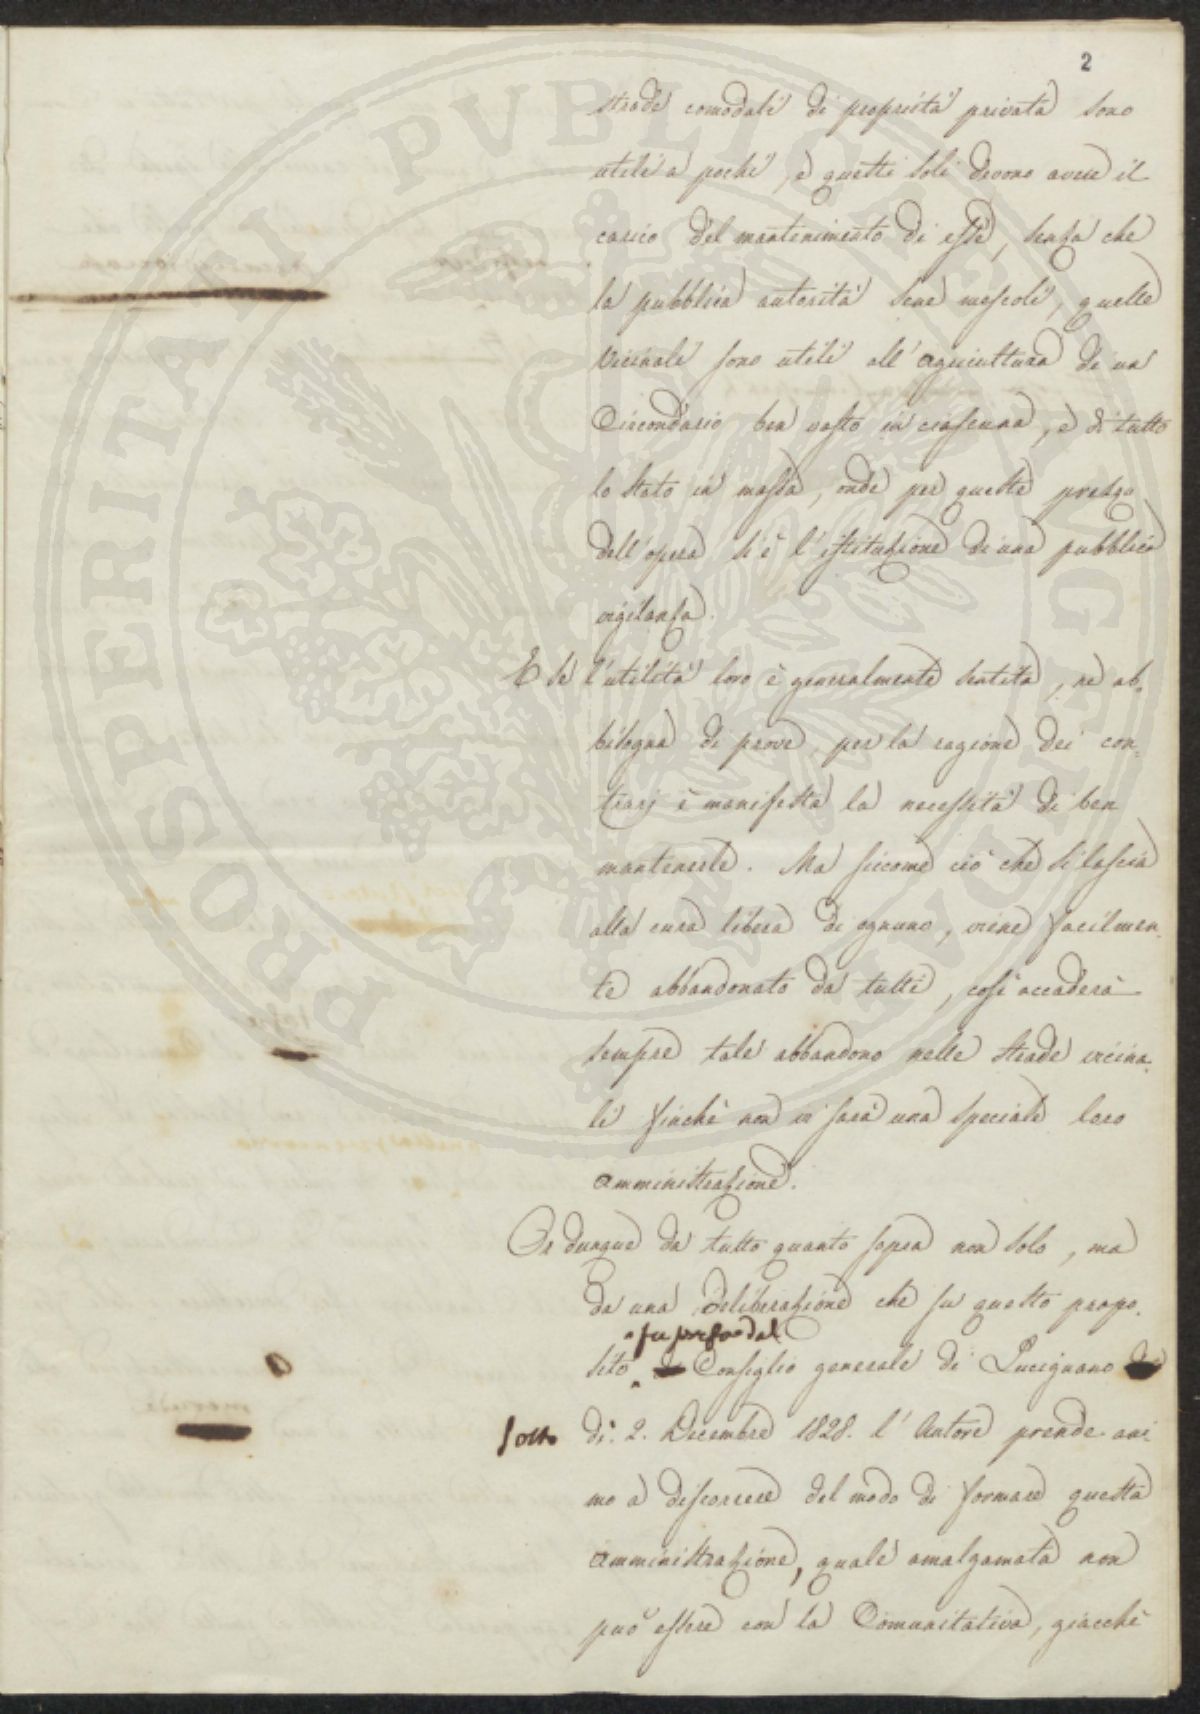 2
strade comodali di proprietà privata sono
utili a pochi, e questi soli devono avere il
carico del mantenimento di esse, senza che
la pubblica autorità sene mescoli, quelle
Vicinali sono utili all'agricultura di un
Circondario ben vasto in ciascuna, e di tutto
lo Stato in massa, onde per queste prezzo
dell'opera si è l'istituzione di una pubblica
vigilanza.
E se l'utilità loro è generalmente sentita, ne ab-
bisogna di prove, per la ragione dei con-
trarj è manifesta la necessità di ben
mantenerle. Ma siccome ciò che si lascia
alla cura libera di ognuno, viene facilmen-
te abbandonato da tutti, così accaderà
sempre tale abbandono nelle strade vicina-
li finchè non vi sarà una speciale loro
amministrazione.
Or dunque da tutto quanto sopra non solo, ma
da una deliberazione che su questo propo-
fu presa dal
sito Consiglio generale di Lucignano
sotto dì: 2. Decembre 1828. l'Autore prende ani
mo a discorrere del modo di formare questa
amministrazione, quale amalgamata non
può essere con la Comunitativa, giacchè
PROSPERITATI PVBLICAE AVGENDAE